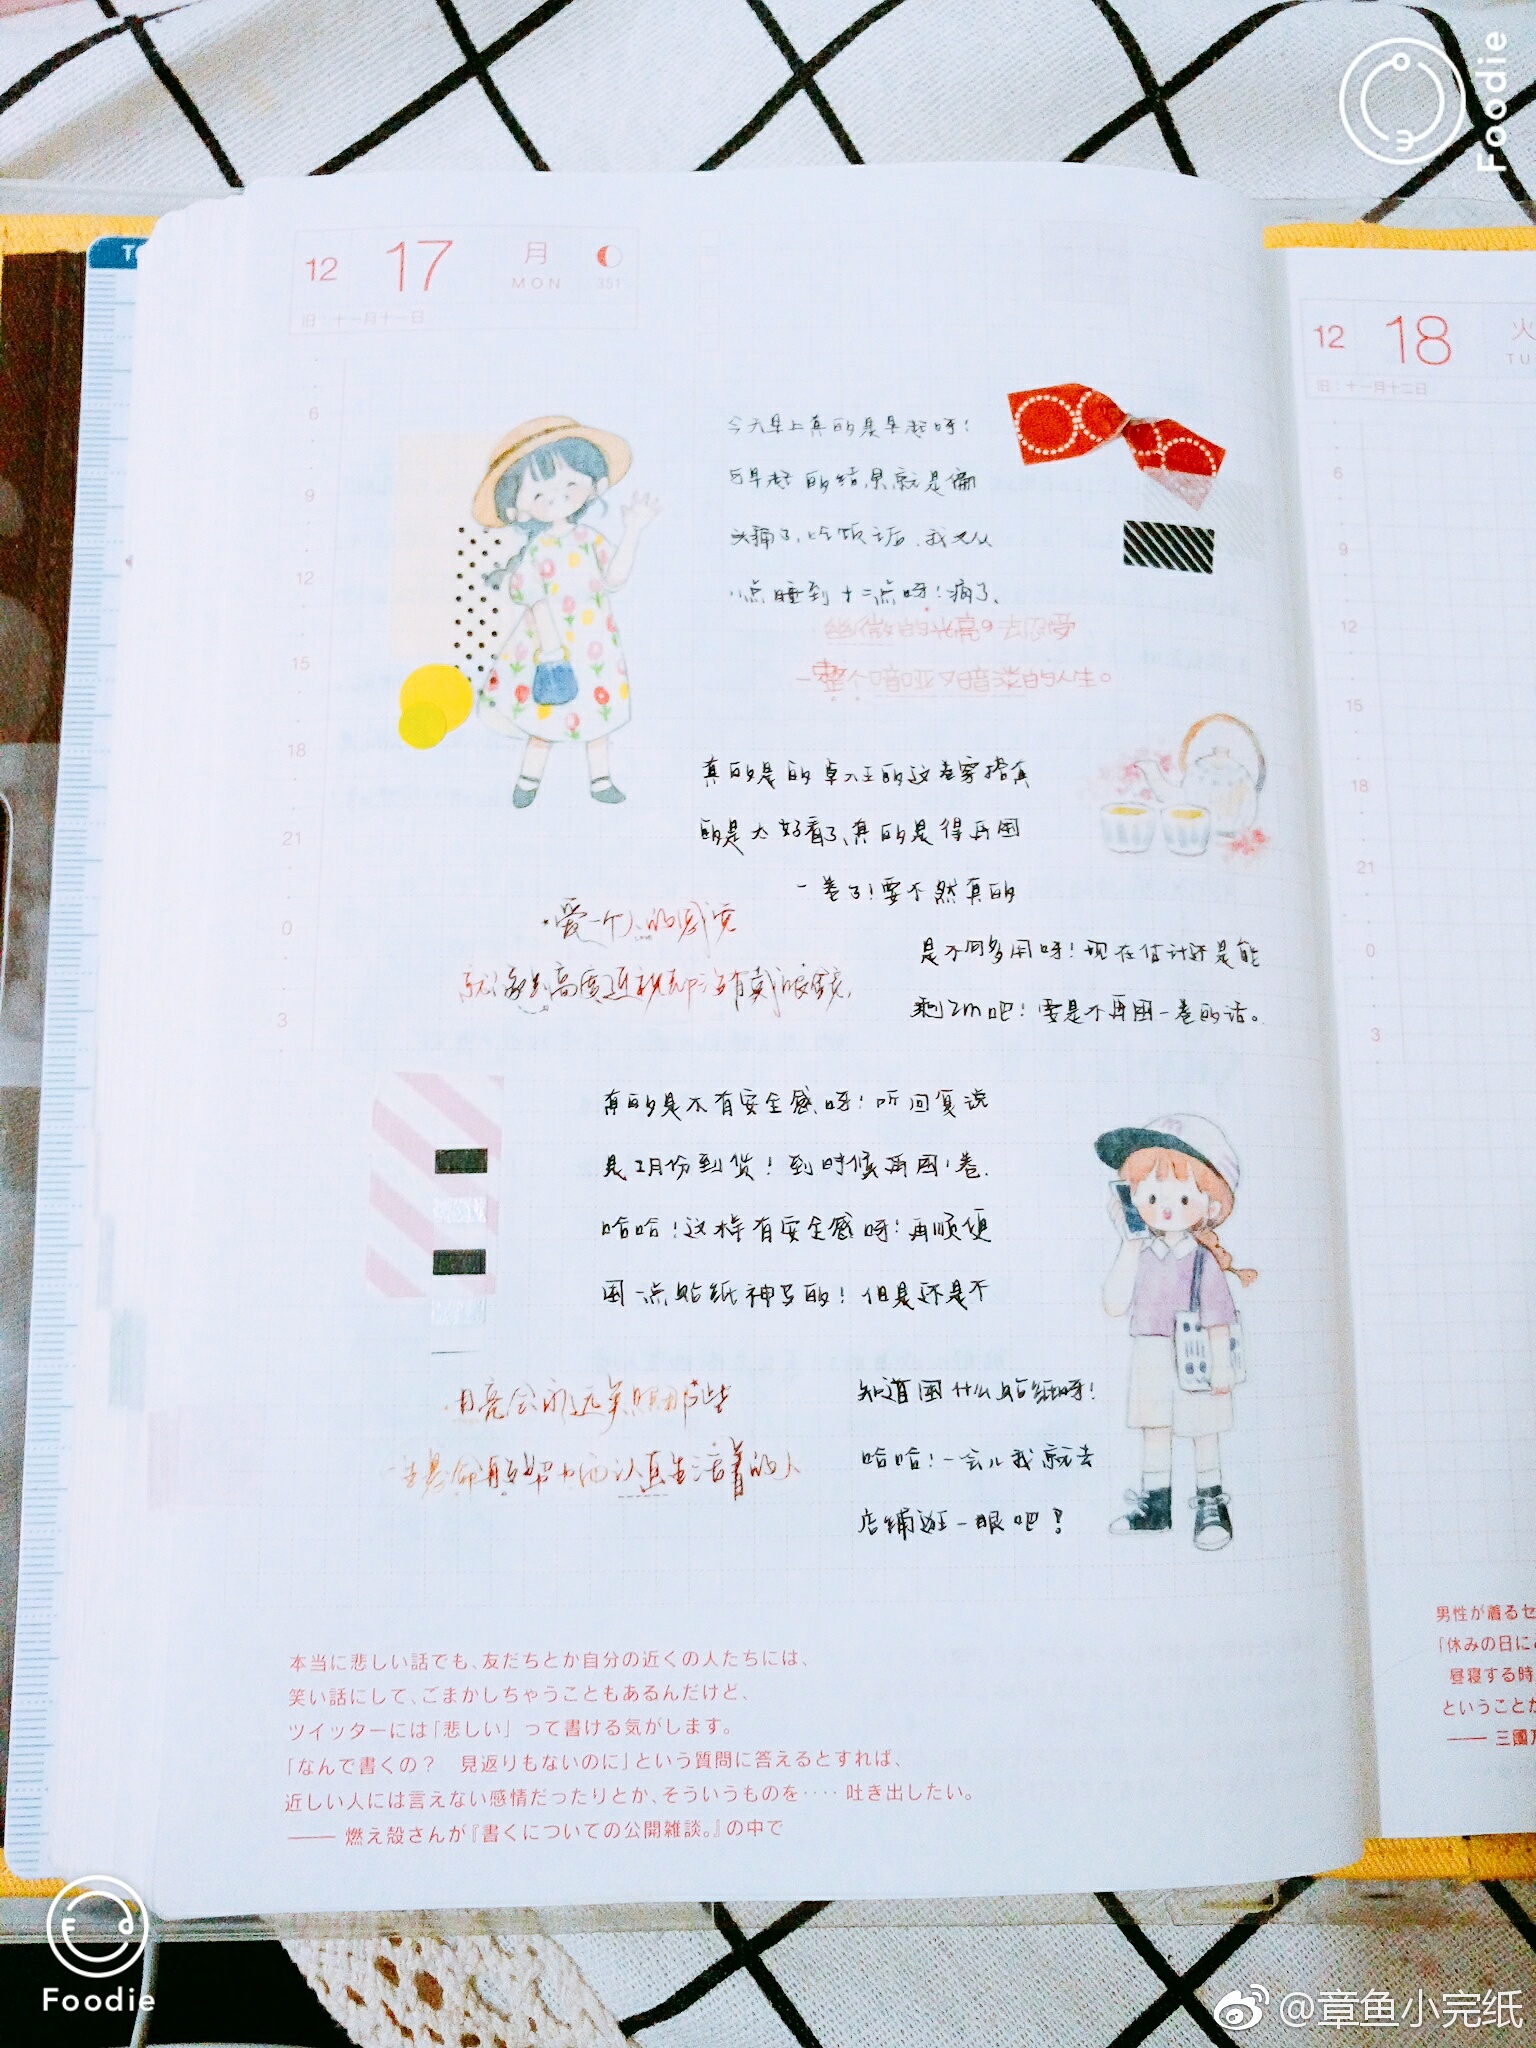 Foodie
To
12 17 月 MON 351
旧:十一月十一日
12 18 火 TU
旧:十一月十二日
6
9
12
15
18
21
0
3
6
9
12
15
18
21
0
3
今天早上真的是早起呀!
早起的结果就是偏
头痛了,吃饭后,我又从
八点睡到十二点呀!病了、
幽微的光亮,去忍受
一整个喑哑又暗淡的人生。
真的是的 的这卷穿搭真
的是太好看了,真的是得再囤
一卷了!要不然真的
是不够多用呀!现在估计还是能
剩2m吧!要是不再囤一卷的话。
爱一个人的感觉
就像是高度近视却没有戴眼镜,
真的是不有安全感呀!听回复说
是2月份到货!到时候再囤1卷.
哈哈!这样有安全感呀!再顺便
囤一点贴纸神马的!但是还是不
知道囤什么贴纸呀!
哈哈!一会儿我就去
店铺逛一眼吧!
月亮会永远关照那些
努力而认真生活着的人
本当に悲しい話でも、友だちとか自分の近くの人たちには、
笑い話にして、ごまかしちゃうこともあるんだけど、
ツイッターには「悲しい」って書ける気がします。
「なんで書くの? 見返りもないのに」という質問に答えるとすれば、
近しい人には言えない感情だったりとか、そういうものを‥‥吐き出したい。
—— 燃え殻さんが『書くについての公開雑談。』の中で
男性が着るセ
「休みの日に
昼寝する時
ということが
—— 三國
Foodie
@章鱼小完纸